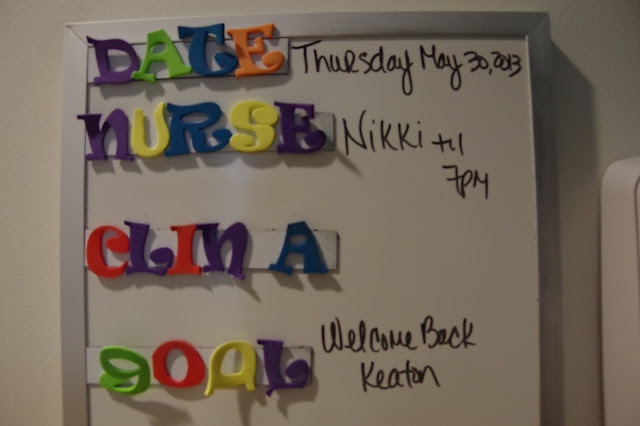 DATE Thursday May 30, 2013
NURSE Nikki til
7pm
CLIN A
GOAL Welcome Back
Keaton